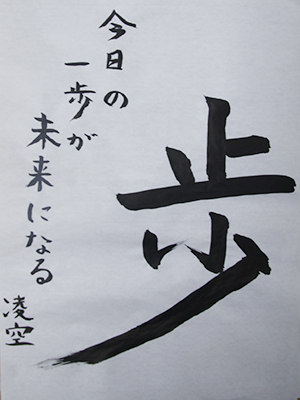 歩
今日の
一歩が
未来になる
凌空